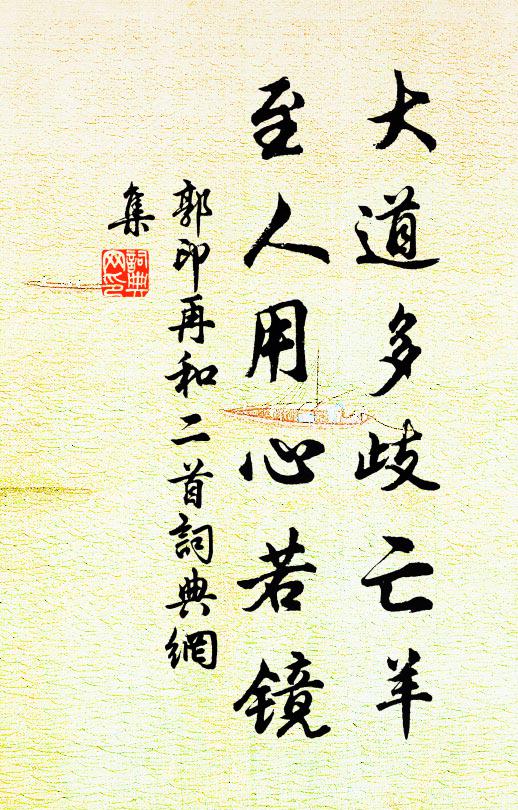 大道多歧亡羊
至人用心若镜
郭印再和二首詞典網
集
詞典
网印